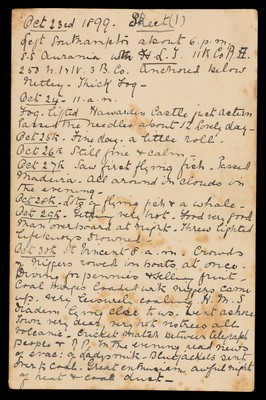 Oct 23rd 1899. Sheet (1)
Left Southampton about 6. p.m.
S.S Aurania with H.L.I. 11th Co R.E.
250 N.15 IV. 3 B. Co. Anchored below
Netley - Thick Fog -
Oct 24 - 11. a.m.
Fog lifted Hawarden Castle just astern
Passed the Needles about 12 Lovely day -
Oct 25th. Fine day. a little roll.
Oct 26th Still fine & calm.
Oct 27th Saw first flying fish. Passed
Madeira. All around in clouds in
the evening -
Oct 28th. Lots of flying fish & a whale.
Oct 29th. Getting very hot. Food very good
Man overboard at night. Threw lighted
lifebuoys drowned -
Oct 30th St Vincent 8 a.m. Crowds
of niggers round in boats at once.
Diving for pennies & selling fruit
Coal barges loaded with niggers came
up. Very leisurely coaling H.M.S
Diadem lying close to us. Went ashore
Town very dear, very hot no trees all
volcanic. Cricket match between telegraph
people & R.A. In the evening read news
of evac: of Ladysmith. Bluejackets sent
over to coal. Great enthusiasm, awful night
of heat & coal dust -